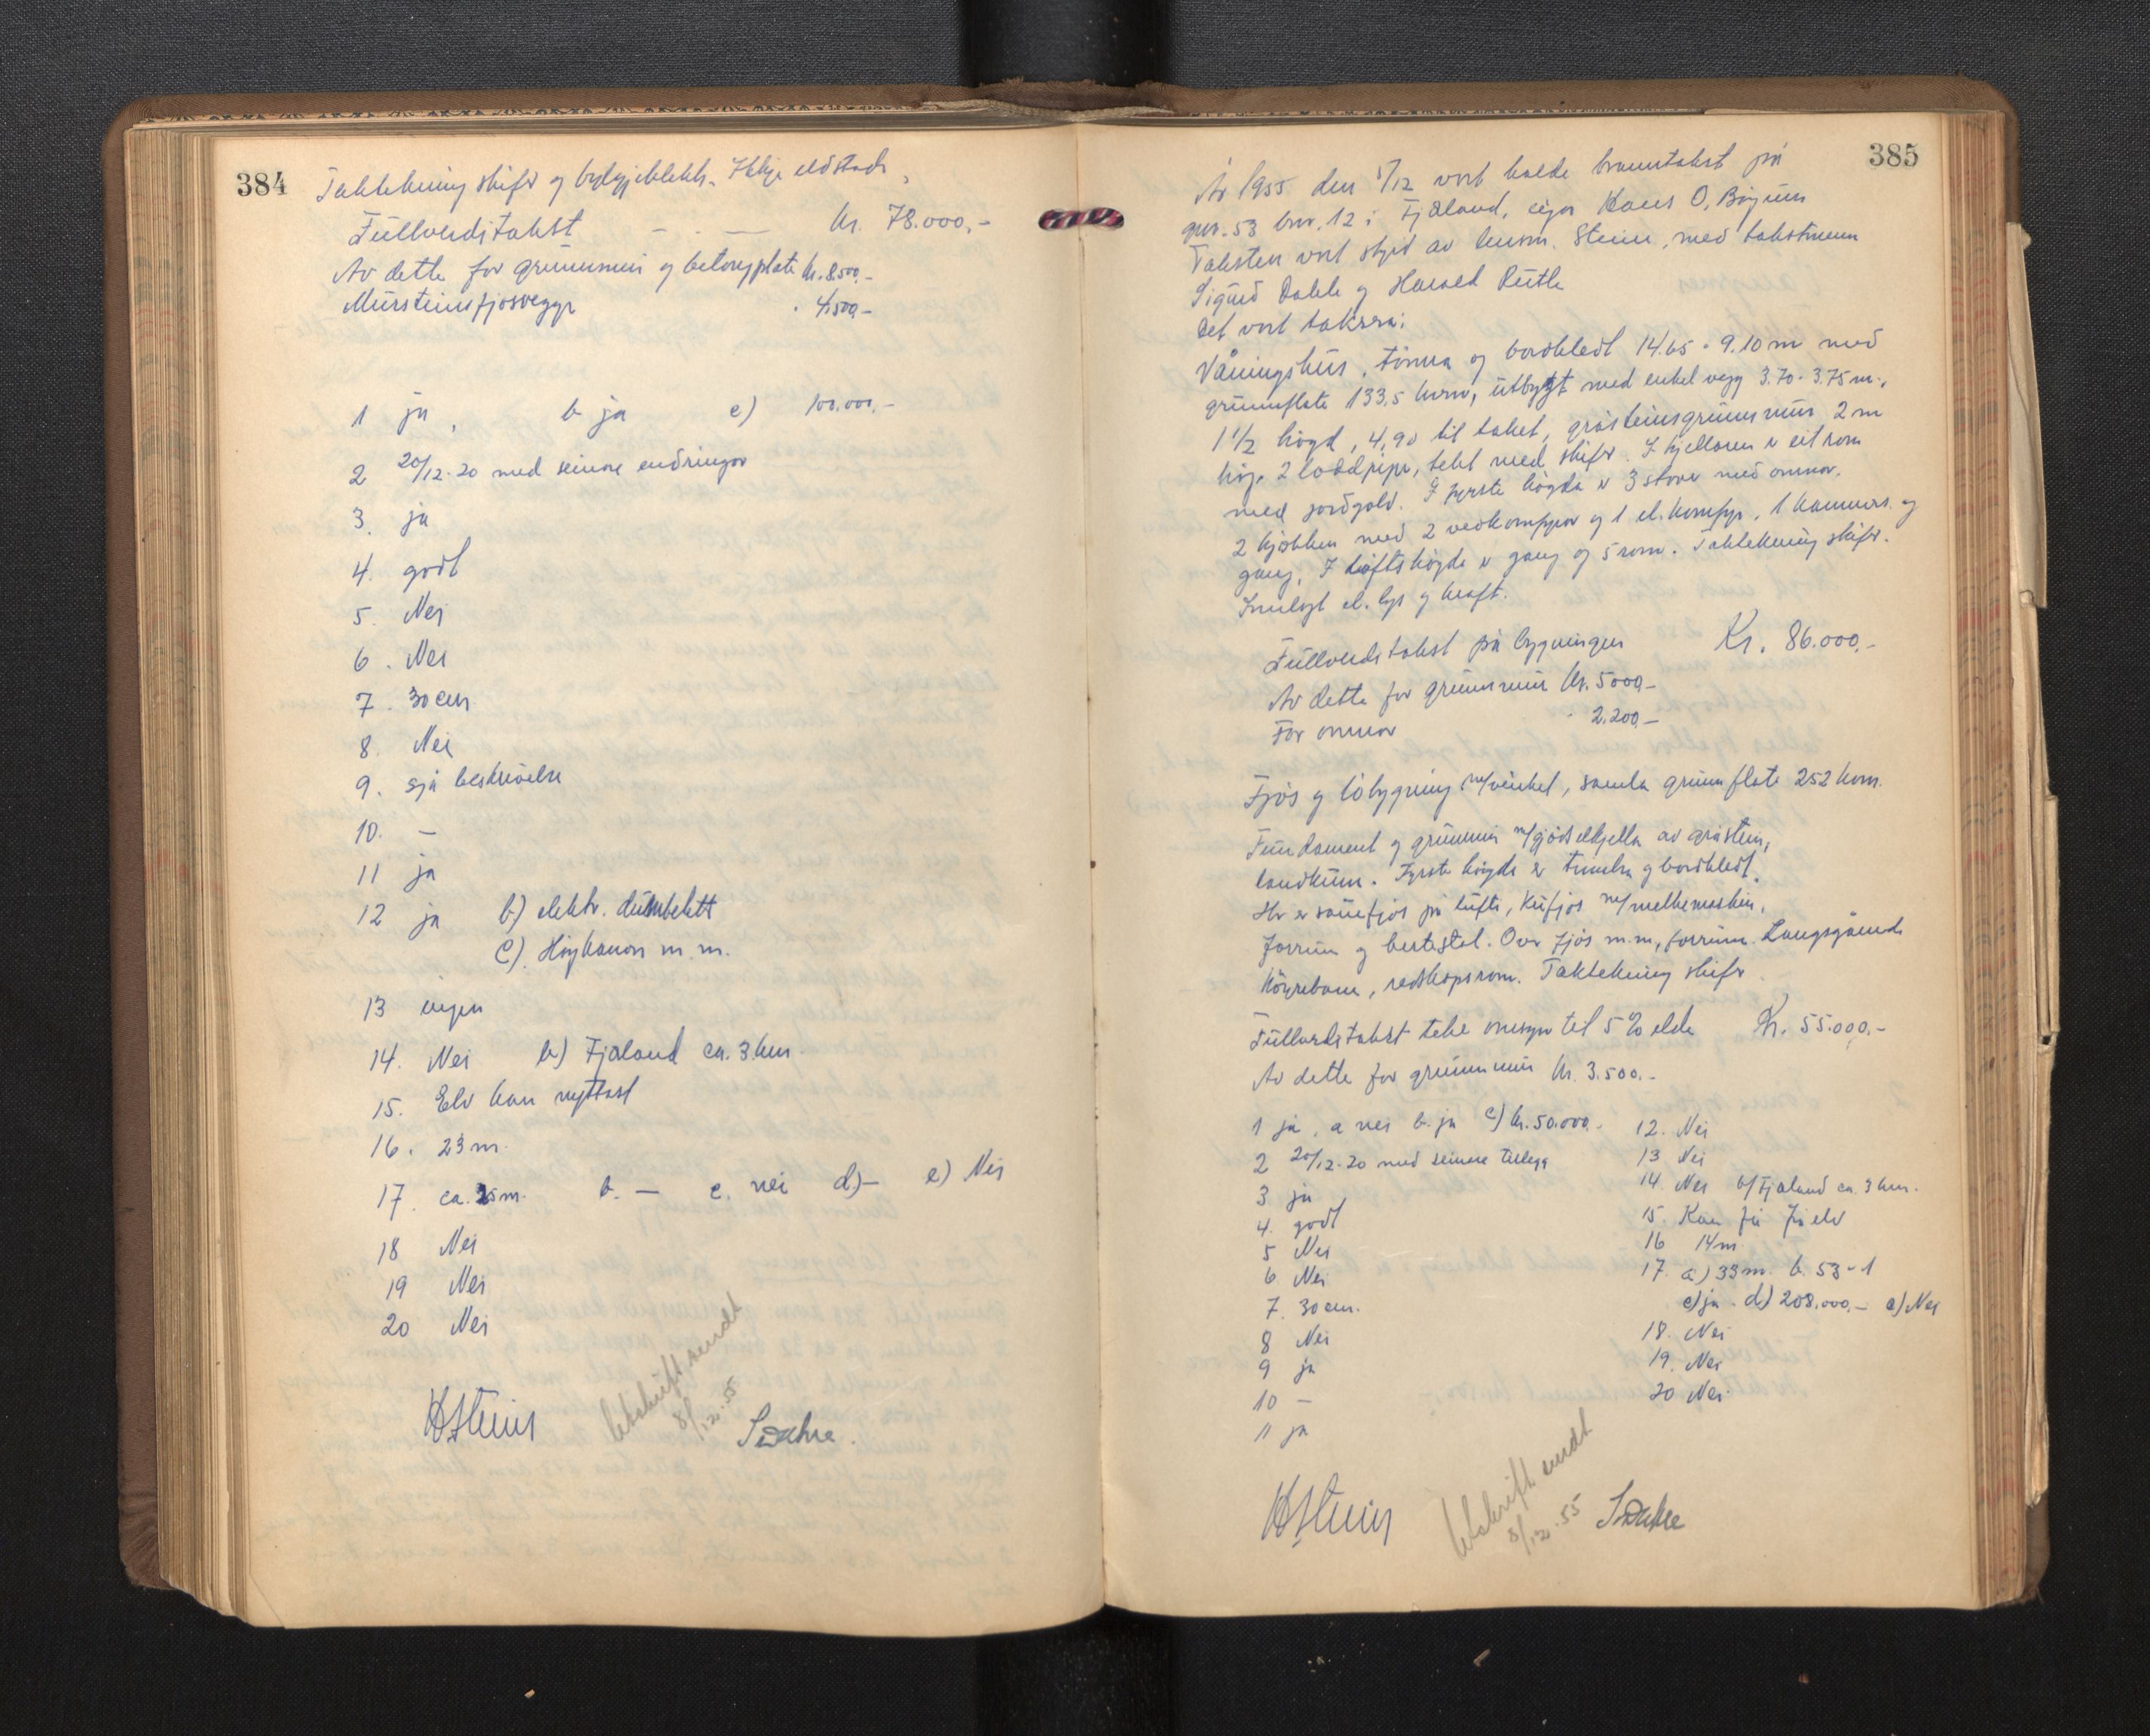 384
Taktekning skifer og bylgjeblekk. Ikkje eldstad.
Fullverditakst — . — kr. 78.000,-
Av dette for grunnmur og betongplate kr. 8.500,-
Mursteinsfjøsvegger " 4.500,-
1 ja, b ja c) 100.000,-
2 20/12-20 med seinare endringar
3. ja
4. godt
5. Nei
6. Nei
7. 30 cm
8. Nei
9. sjå beskrivelse
10. —
11 ja
12 ja b) elektr.
C). Høykanon m.m.
13 ingen
14. Nei b) Fjæland ca. 3 km.
15. Elv kan nyttast
16. 23 m.
17. ca. 25 m. b. — c. nei d) — e) Nei
18 Nei
19 Nei
20 Nei
HStein
Utskrift sendt
8/12.55
SDahle.
385
År 1955 den 5/12 vart halde branntakst på
gnr. 53 bnr. 12 i Fjæland, eigar Hans O. Bøyum
Taksten vart styrt av lensm. Stein, med takstmenn
Sigurd Dahle og Harald Rutle
Det vart taksera:
Våningshus, tømra og bordkledt 14.65 · 9.10 m med
grunnflate 133,5 kvm, utbygt med enkel vegg 3.70 · 3.75 m.,
1 1/2 høgd, 4,90 til taket, gråsteinsgrunnmur 2 m
høg. 2 loddpiper, tekt med skifer. I kjellaren er eit rom
med jordgolv. I fyrste høgda er 3 stover med omnar,
2 kjøkken med 2 vedkomfyrar og 1 el. komfyr, 1 kammers og
gang. I loftshøgda er gang og 5 rom. Taktekning skifer.
Innlagt el. lys og kraft.
Fullverditakst på bygningen Kr. 86.000,-
Av dette for grunnmur kr. 5000,-
For omnar " 2.200,-
Fjøs og løbygning m/vinkel, samla grunnflate 252 kvm.
Fundament og grunnmur m/gjødselkjellar av gråstein,
landkum. Fyrste høgda er tømra og bordkledt.
Her er sauefjøs på lufti, kufjøs m/melkemaskin,
forrum og hestestal. Over fjøs m.m, forrum. Langsgåande
køyrebane, redskapsrom. Taktekning skifer
Fullverditakst teke omsyn til 5% elde Kr. 55.000,-
Av dette for grunnmur kr. 3.500.-
1 ja, a nei b. ja c) kr. 50.000.-
2 20/12-20 med seinare tillegg
3 ja
4. godt
5 Nei
6 Nei
7. 30 cm.
8 Nei
9 ja
10 —
11 ja
12. Nei
13 Nei
14. Nei b/ Fjæland ca. 3 km.
15. Kan få frå elv
16 14 m
17. a) 33 m. b. 53-1
c) ja. d) 208.000,- e) Nei
18. Nei
19. Nei
20 Nei.
HStein
Utskrift sendt
8/12.55
SDahle